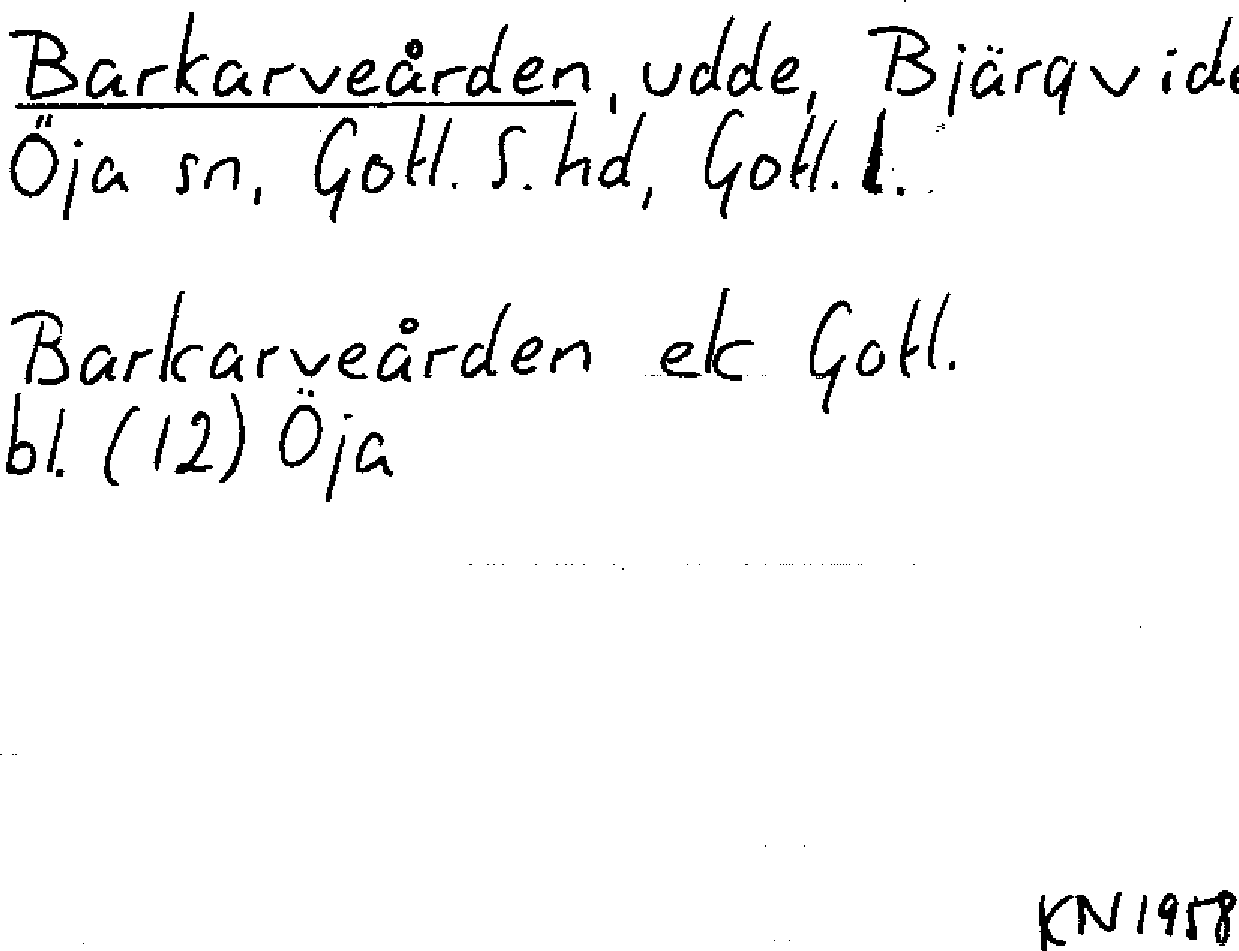 Barkarveården, udde, Bjärqvide
Öja sn, Gotl. S. hd, Gotl. l.
Barkarveården ek Gotl.
bl. (12) Öja
KN 1958